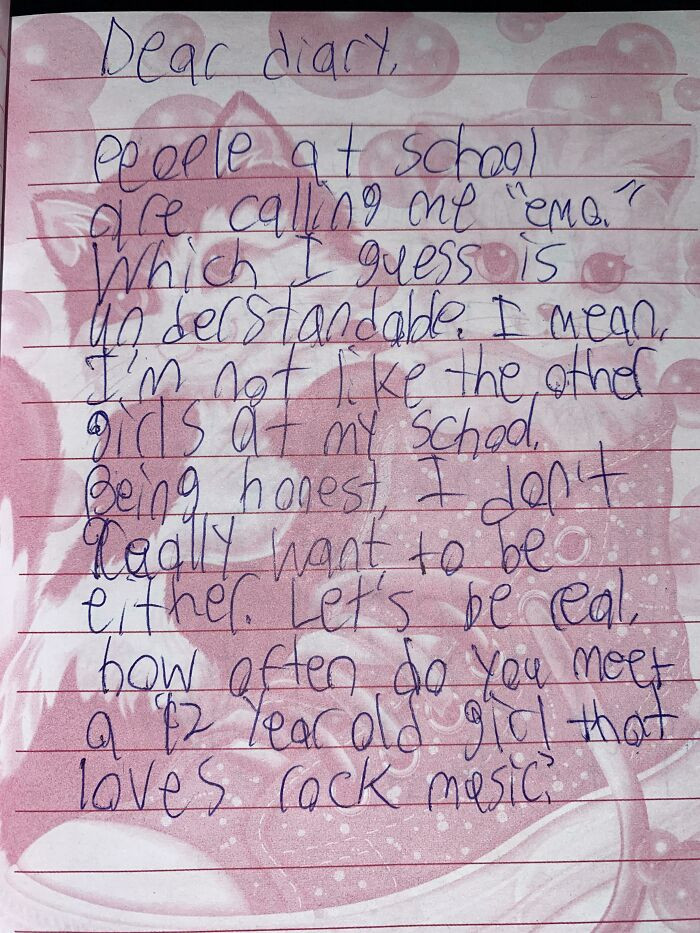 Dear diary,
people at school
are calling me "emo."
Which I guess is
understandable. I mean,
I'm not like the other
girls at my school.
Being honest, I don't
really want to be
either. Let's be real,
how often do you meet
a 12 year old girl that
loves rock music?